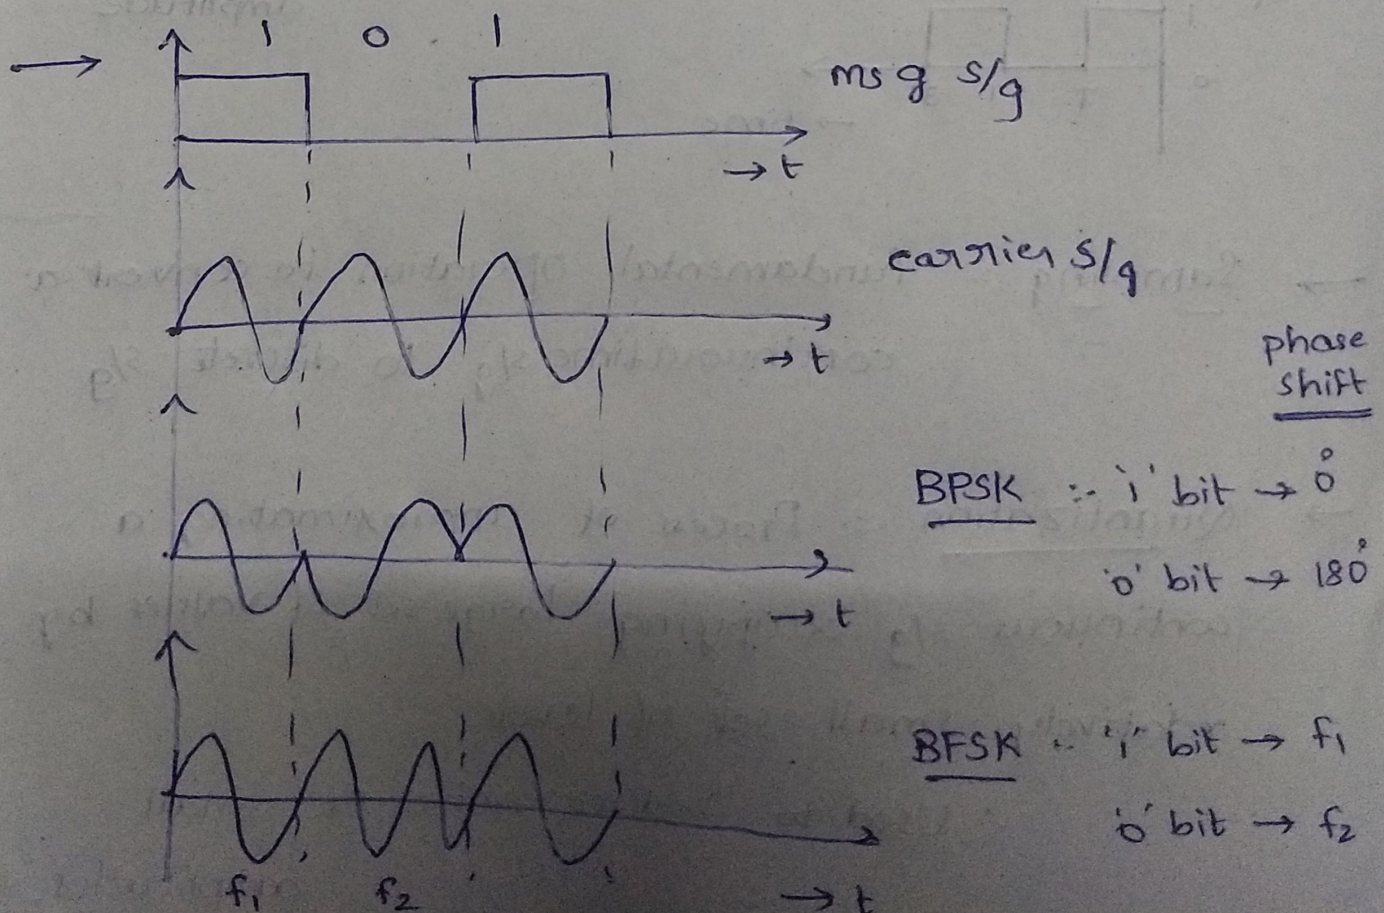 1 0 1
msg s/g
→ t
carrier s/g
→ t
phase
shift
BPSK :- '1' bit → 0°
'0' bit → 180°
→ t
BFSK :- '1' bit → f₁
'0' bit → f₂
f₁ f₂
→ t